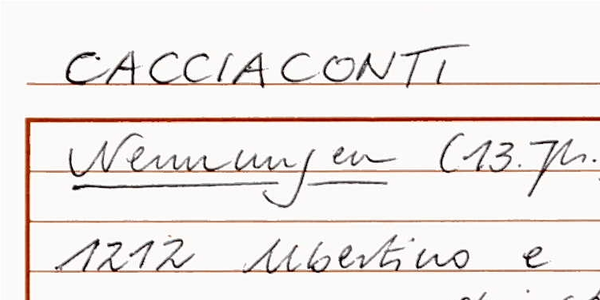 CACCIACONTI
Nennungen (13. Jh.
1212 Ubertino e